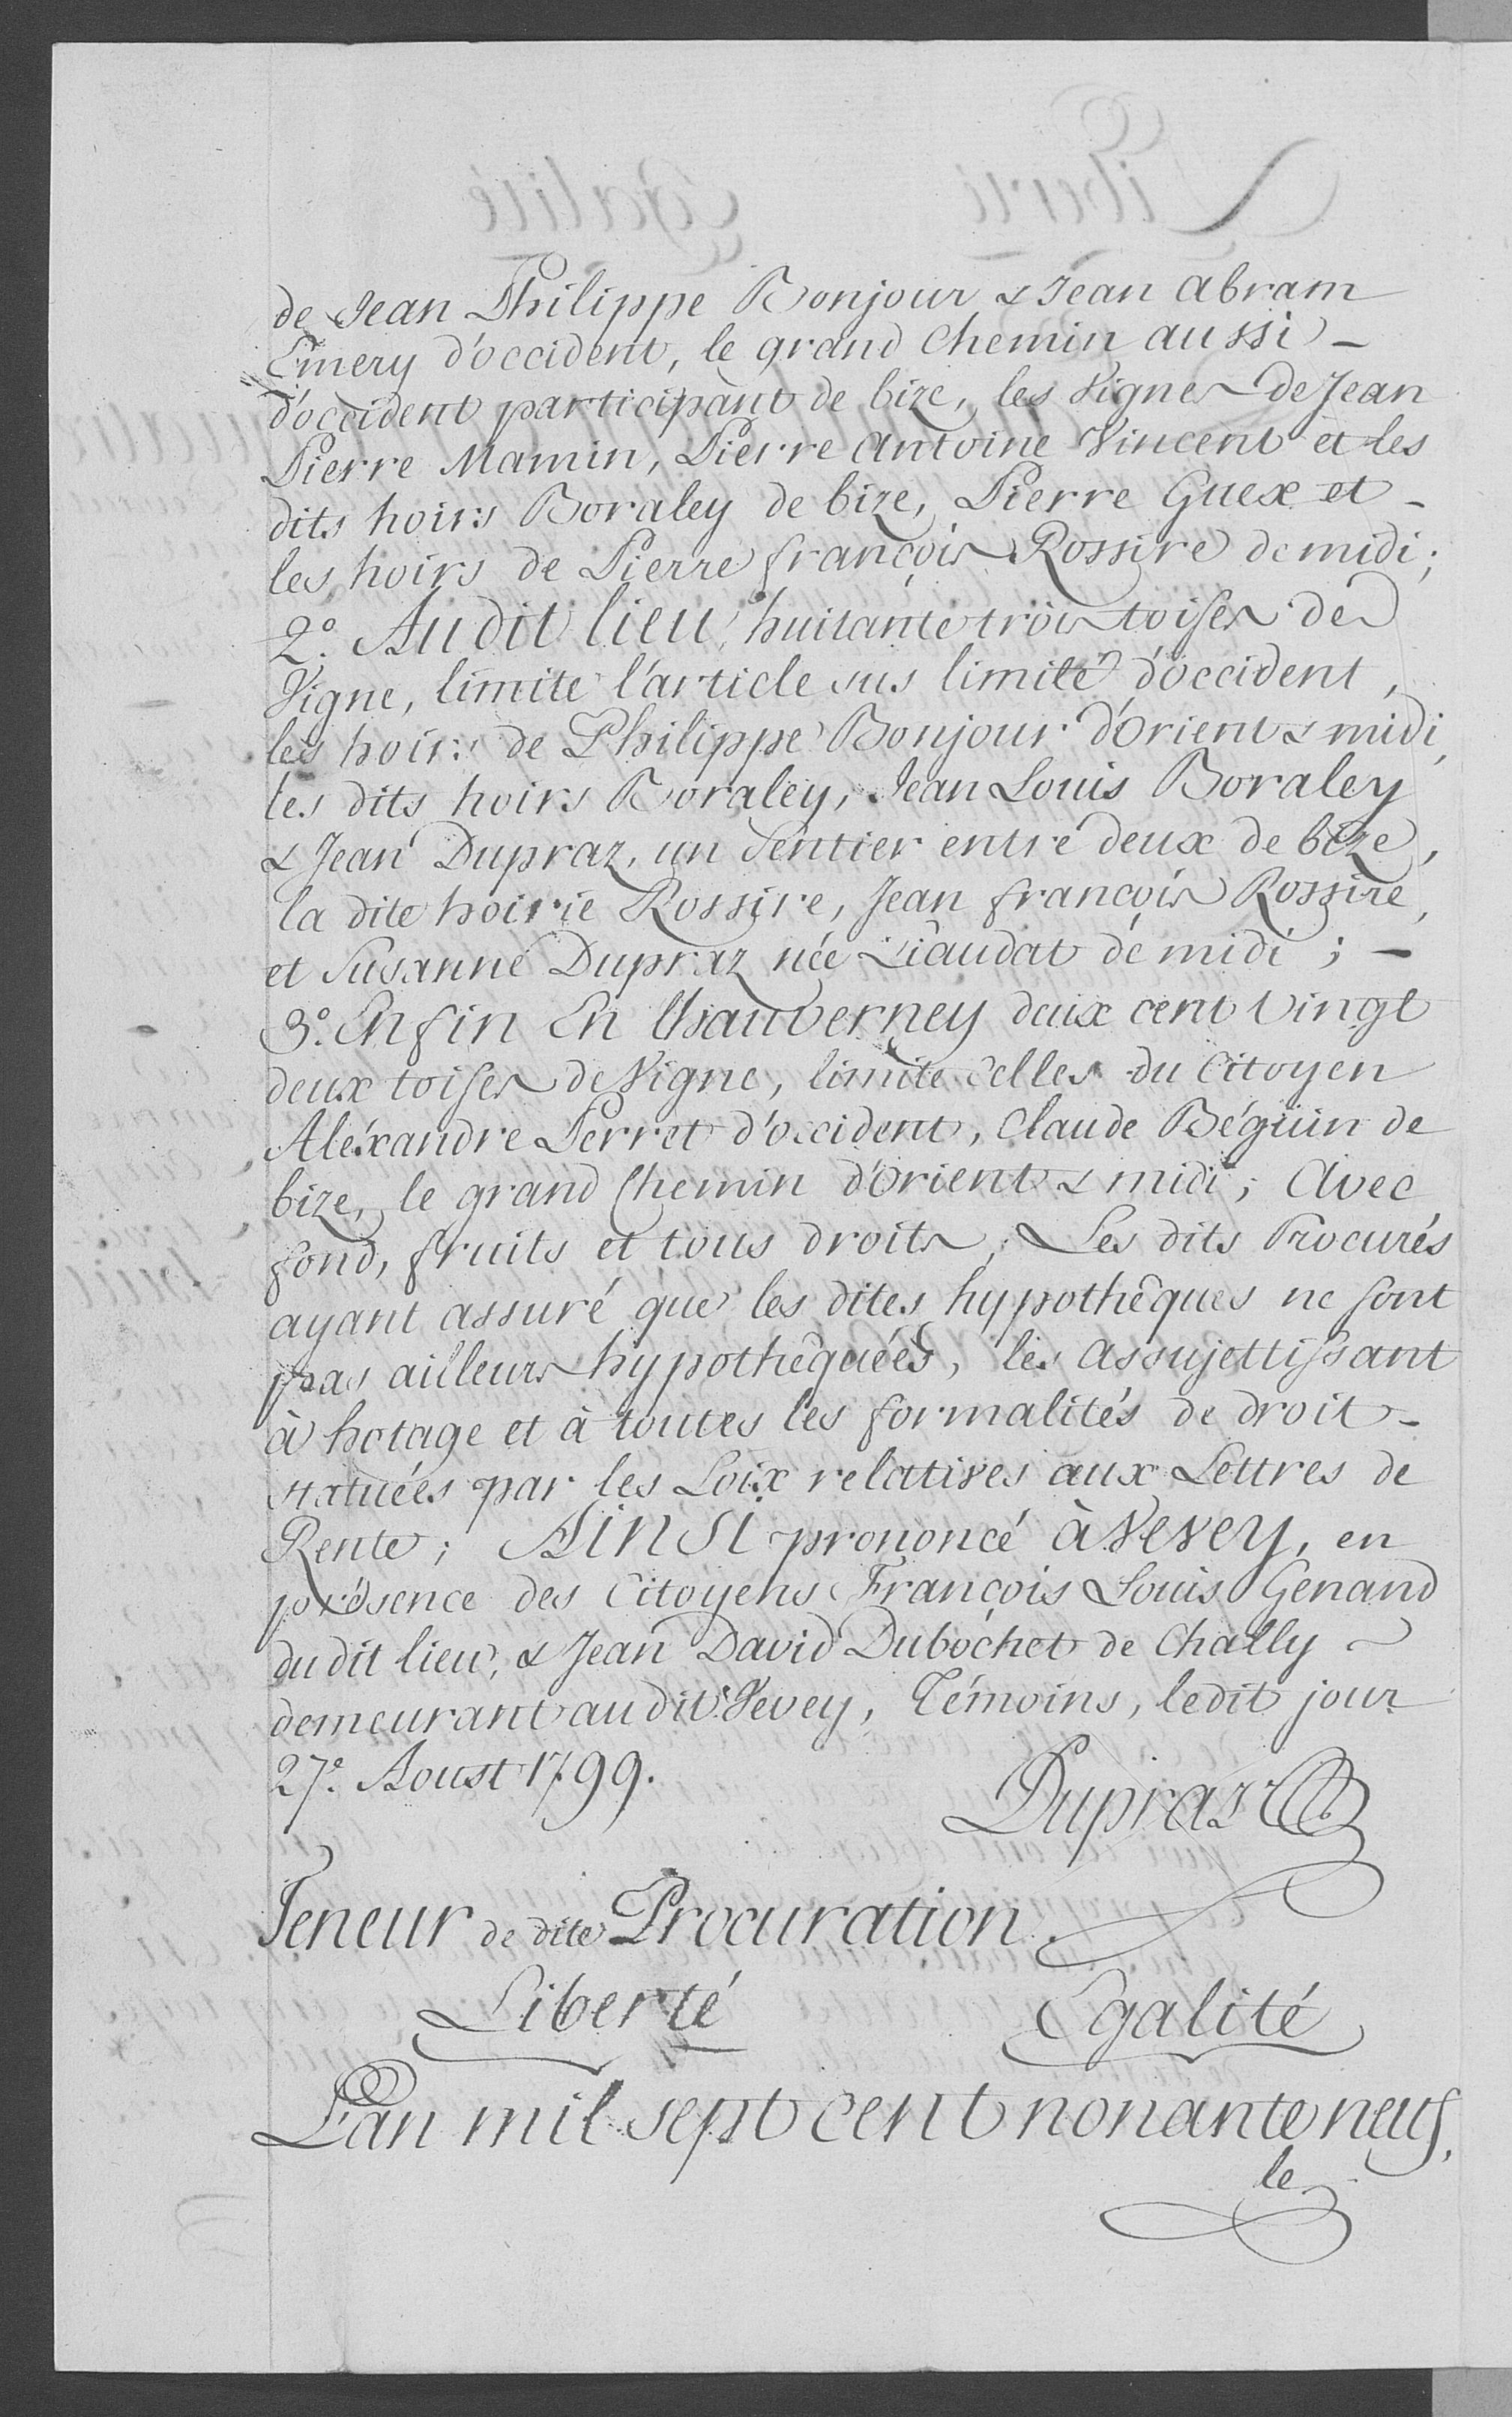 de Jean Philippe Bonjour & Jean Abram
Emery d'occident, le grand Chemin aussi -
d'occident participant de bize, les Vignes de Jean
Pierre Mamin, Pierre Antoine Vincent et les
dits hoirs Boraley de bize, Pierre Guex et -
les hoirs de Pierre françois Rossire de midi;
2.° Au dit lieu, huitante trois toises de
Vigne, limite l'article sus limité d'occident,
les hoirs de Philippe Bonjour d'Orient & midi,
les dits hoirs Boraley, Jean Louis Boraley
& Jean Dupraz, un Sentier entre deux de bize,
la dite hoirie Rossire, Jean françois Rossire,
et Susanne Dupraz née Liaudat de midi; -
3.° Enfin En Chauverney deux cent vingt
deux toises de Vigne, limite celles du Citoyen
Aléxandre Perret d'occident, Claude Béguin de
bize, le grand Chemin d'Orient & midi; Avec
fond, fruits et tous droits; Les dits Procurés
ayant assuré que les dites hypothêques ne sont
pas ailleurs hypothêquées, les assujettissant
à hotage et à toutes les formalités de droit -
statuées par les Loix relatives aux Lettres de
Rente; Ainsi prononcé à Vevey, en
présence des Citoyens François Louis Genand
du dit lieu, & Jean David Dubochet de Chally -
demeurant au dit Vevey, Témoins, ledit jour
27.e Aoust 1799.
Dupraz
Teneur de dite Procuration.
Liberté Egalité
L'an mil sept cent nonante neuf,
le